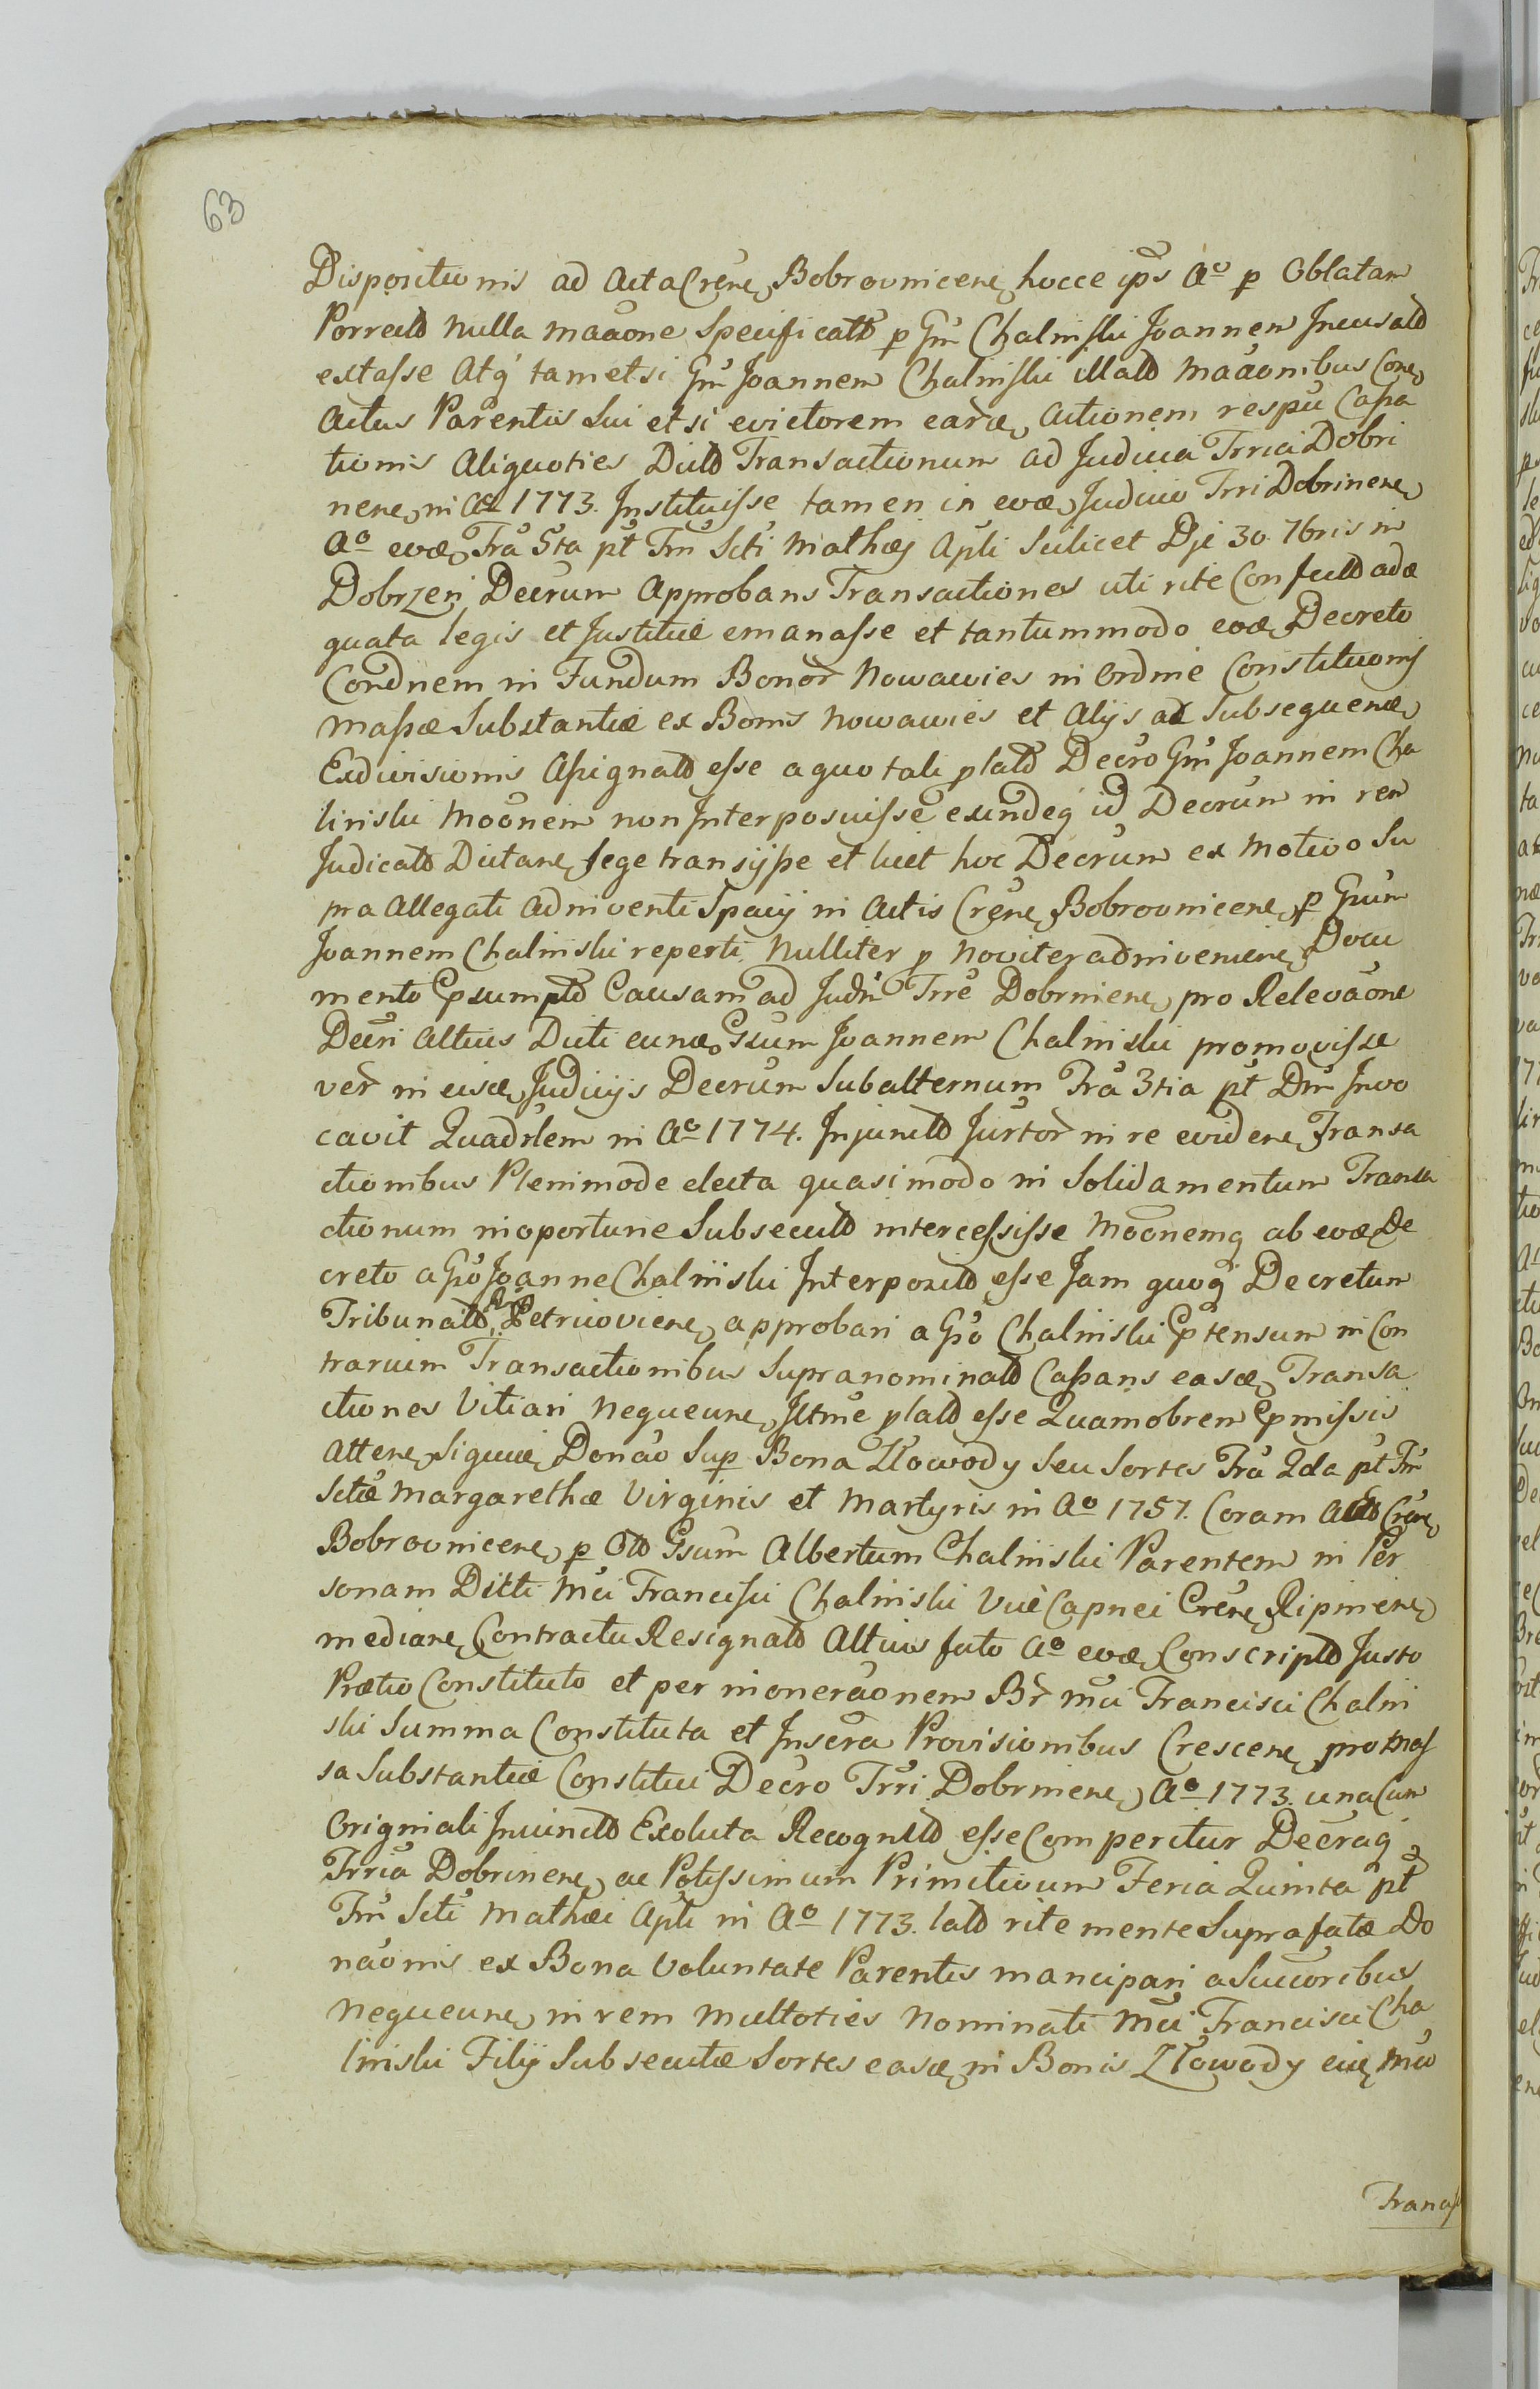 63
Dispositionis ad Acta Crên Bobrovnicen hocce ips Aº p Oblatam
Porrectd Nulla maãone Specificatd p Gm Chalinski Joannem Incusatd
extasse Atq tametsi Gm Joannem Chalinski illatd maãonibus
Actus Parentis Sui etsi evictorem eare Actionem respu Cassa
tionis Aliquoties Dictd Transactionum ad Judicia Trria Dobri
nen in Aº 1773. Instituisse tamen in eode Judicio Trri Dobrinen
Aº eode Fra 5ta pt Fm Scti Mathæj Apli Scilicet Dje 30. 7bris in
Dobrzen Decrum Approbans Transactiones uti rite Confectd adæ
quata legis et Justitiæ emanasse et tantummodo eode Decreto
Condnem in Fundum Bonor Nowawies in Ordine Constitucionis
massæ Substantiæ ex Bonis Nowawies et Alijs ad Subsequen
Exdivisionis Assignatd esse a quo tali platd Decro Gm Joannem Cha
linski Moõnem non Interposuisse exindeq id Decrum in rem
Judicatd Dictan lege transijsse et licet hoc Decrum ex Motivo Su
pra Allegati Adinventi Spacij in Actis Crên Bobrovnicen p Gsum
Joannem Chalinski reperti Nulliter p Noviter adinvenien Docu
mento Psumptd Causam ad Judm Trre Dobrinen pro Relevaõne
Decri Altius Dicti eunde Gsum Joannem Chalinski promovisse
ver in eisde Judicijs Decrum Subalternum Fra 3tia pt Dm Invo
cavit Quadrlem in Aº 1774. Injunctd Jurtor in re eviden Transa
ctionibus Plenimode electa quasi modo in Solidamentum Transa
ctionum inoportune Subsecutd intercessisse Moõnemq ab eode De
creto a Gso Joanne Chalinski Interpositd esse Jam quoq Decretum
Tribunald Petricovien approbari a Gso Chalinski Ptensum in Con
trarium Transactionibus Supranominatd Cassans easde Transa
ctiones Vitiari Nequeun platd esse Quamobrem Pmissis
Atten Donão Sup Bona Złowody Seu Sortes Fra 2da pt Fm
Sctæ Margarethæ Virginis et Martyris in Aº 1757. Coram Actd Crên
Bobrovnicen p Gsum Albertum Chalinski Parentem in Per
sonam Dicti Mci Francisci Chalinski Vice Capnei Crên Ripinen
median Contractu Resignatd Altius fato Aº eode Conscriptd Justo
Prætio Constituto et per inoneraõnem Br Mci Francisci Chalin
ski Summa Constituta et Insera Provisionibus Crescen pro Mas
sa Substantiæ Constitui Decro Trri Dobrinen Aº 1773. una Cum
Originali Inscriptd Exoluta Recognitd esse Comperitur Decraq
Trria Dobrinen ac Potissimum Primitivum Feria Quinta pt
Fm Scti Mathæi Apli in Aº 1773. latd rite mente Suprafatæ Do
naõnis ex Bona Voluntate Parentis mancipari a Succoribus
Nequeun in rem Multoties Nominati Mci Francisci Cha
linski Filij Subsecutæ Sortes easde in Bonis Złowody eide Mco
Transf